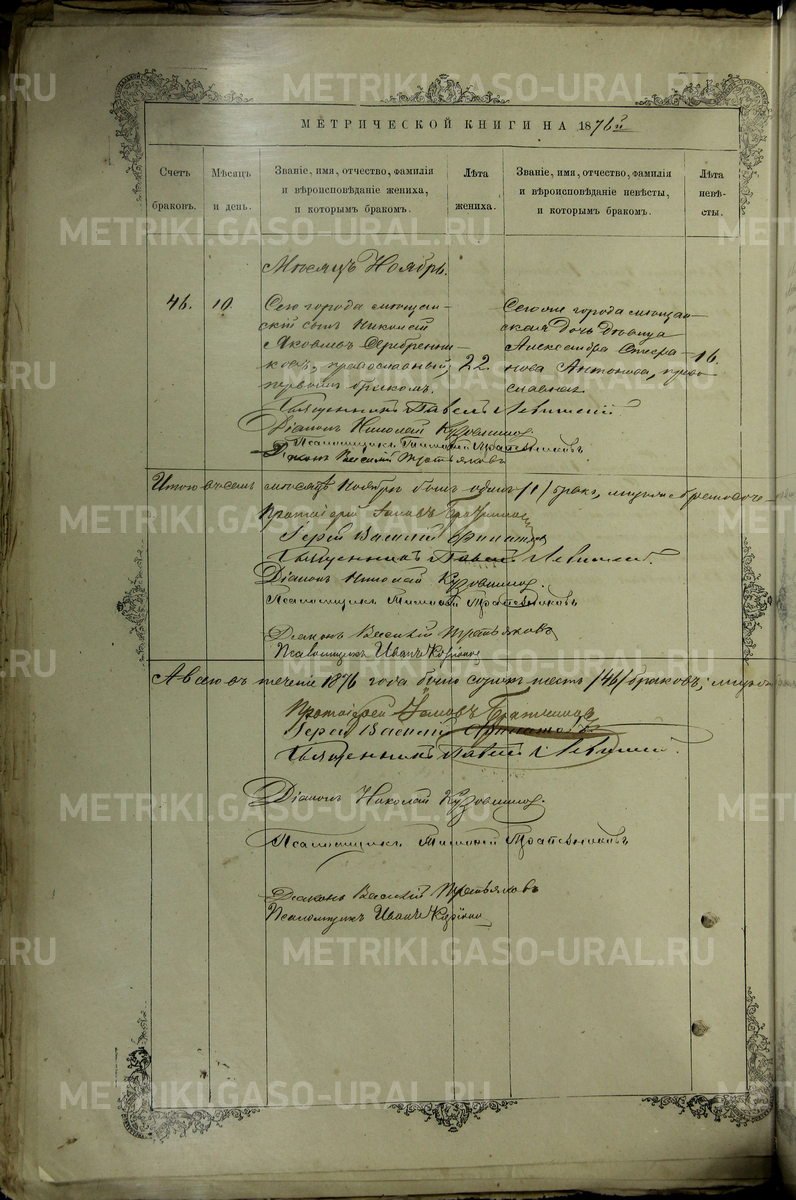 МЕТРИЧЕСКОЙ КНИГИ НА 1876й
Счетъ браковъ.
Мѣсяцъ и день.
Званіе, имя, отчество, фамилія и вѣроисповѣданіе жениха, и которымъ бракомъ.
Лѣта жениха.
Званіе, имя, отчество, фамилія и вѣроисповѣданіе невѣсты, и которымъ бракомъ.
Лѣта невѣсты.
Мѣсяцъ Ноябрь.
46.
10.
Сего города мѣщан-
скій сынъ
Яковлевъ Серебренни-
ковъ, православный,
первымъ бракомъ.
22.
Сего же города мѣщан-
ская дочь дѣвица
Александра
нова Антонова, право-
славная
16.
Священникъ Павелъ Левитскій.
Діаконъ Николай
Псаломщикъ Трапезниковъ
Діаконъ Василій Третьяковъ
Итого въ семъ мѣсяцѣ Ноябрѣ былъ одинъ /1/ бракъ,
Протоіерей
Іерей Василій
Священникъ Павелъ Левитскій.
Діаконъ Николай
Псаломщикъ Трапезниковъ
Діаконъ Василій Третьяковъ
Псаломщикъ Иванъ
А всего въ теченіе 1876 года было сорокъ шесть /46/ браковъ;
Протоіерей
Іерей Василій
Священникъ Павелъ Левитскій.
Діаконъ Николай
Псаломщикъ Трапезниковъ
Діаконъ Василій Третьяковъ
Псаломщикъ Иванъ
METRIKI.GASO-URAL.RU